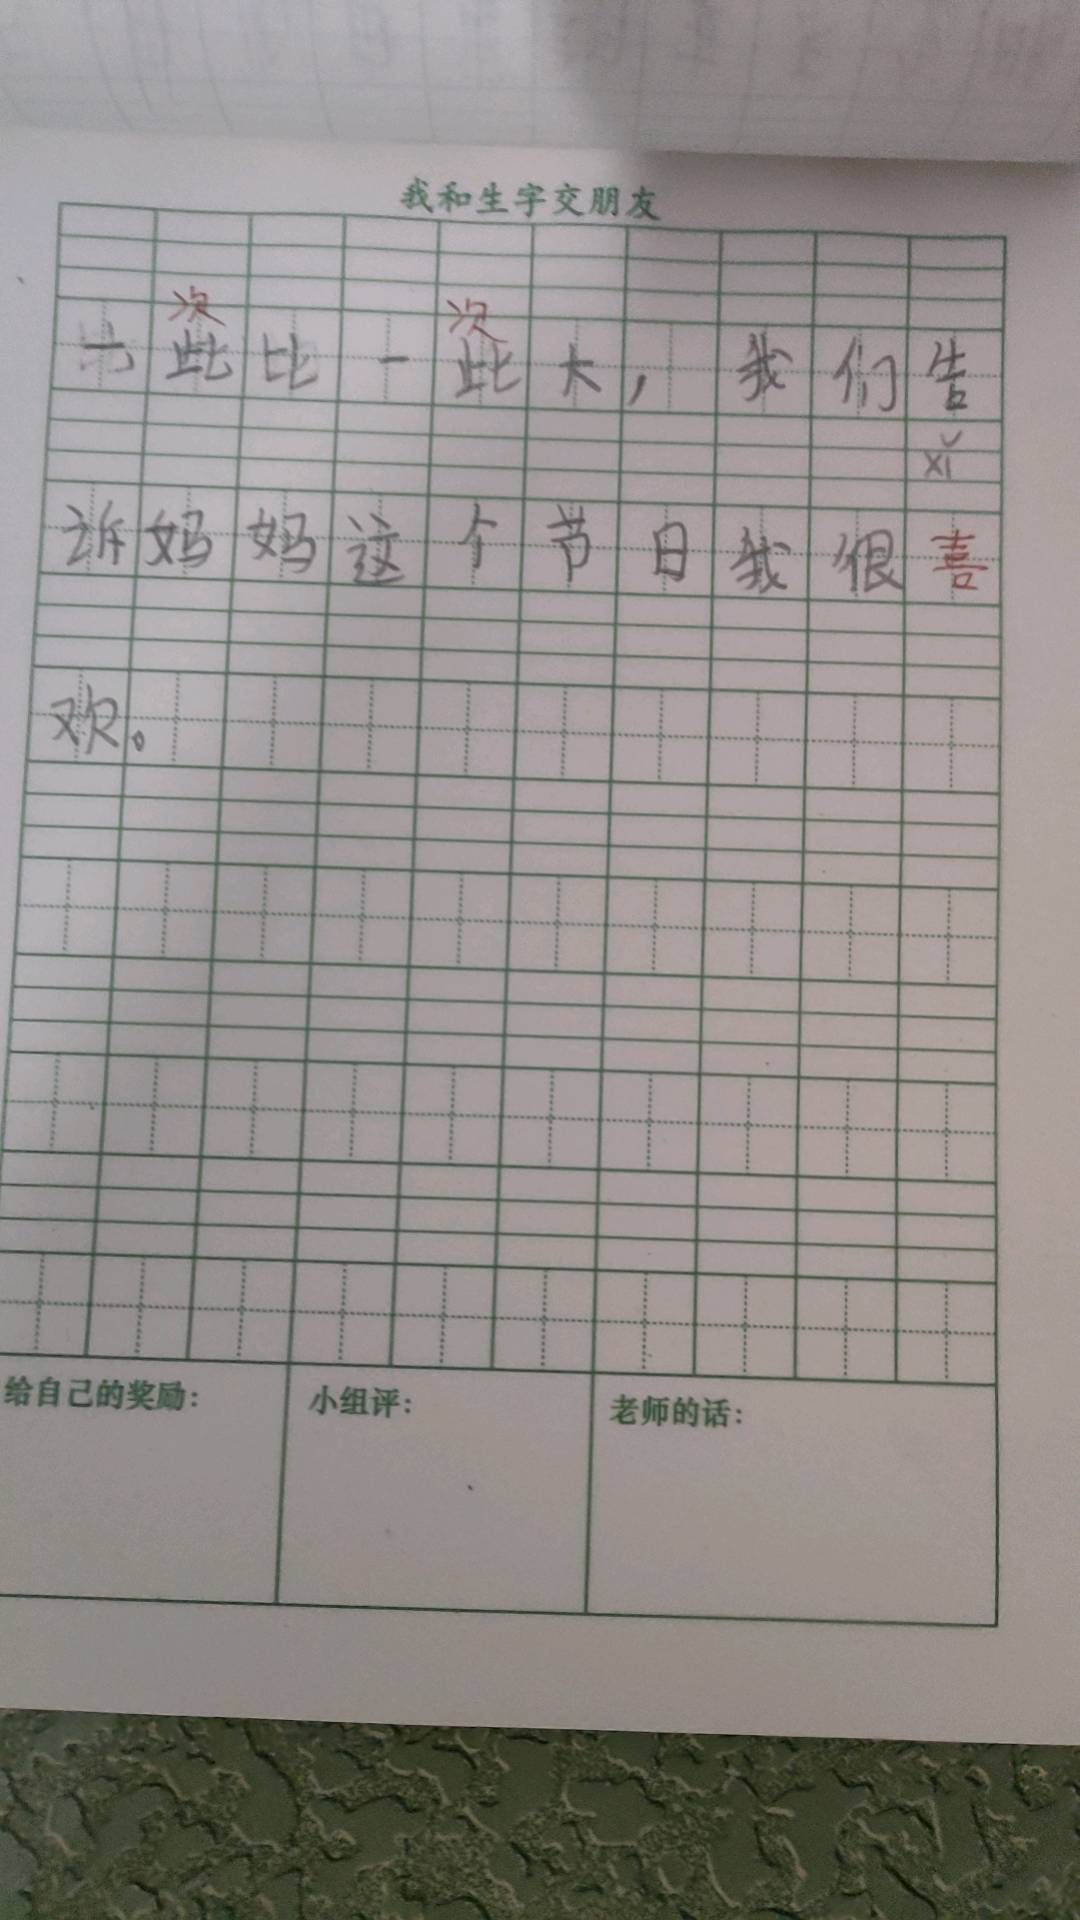 我和生字交朋友
次 次
一此比一此大，我们告
xǐ
诉妈妈这个节日我很喜
欢。
给自己的奖励：
小组评：
老师的话：